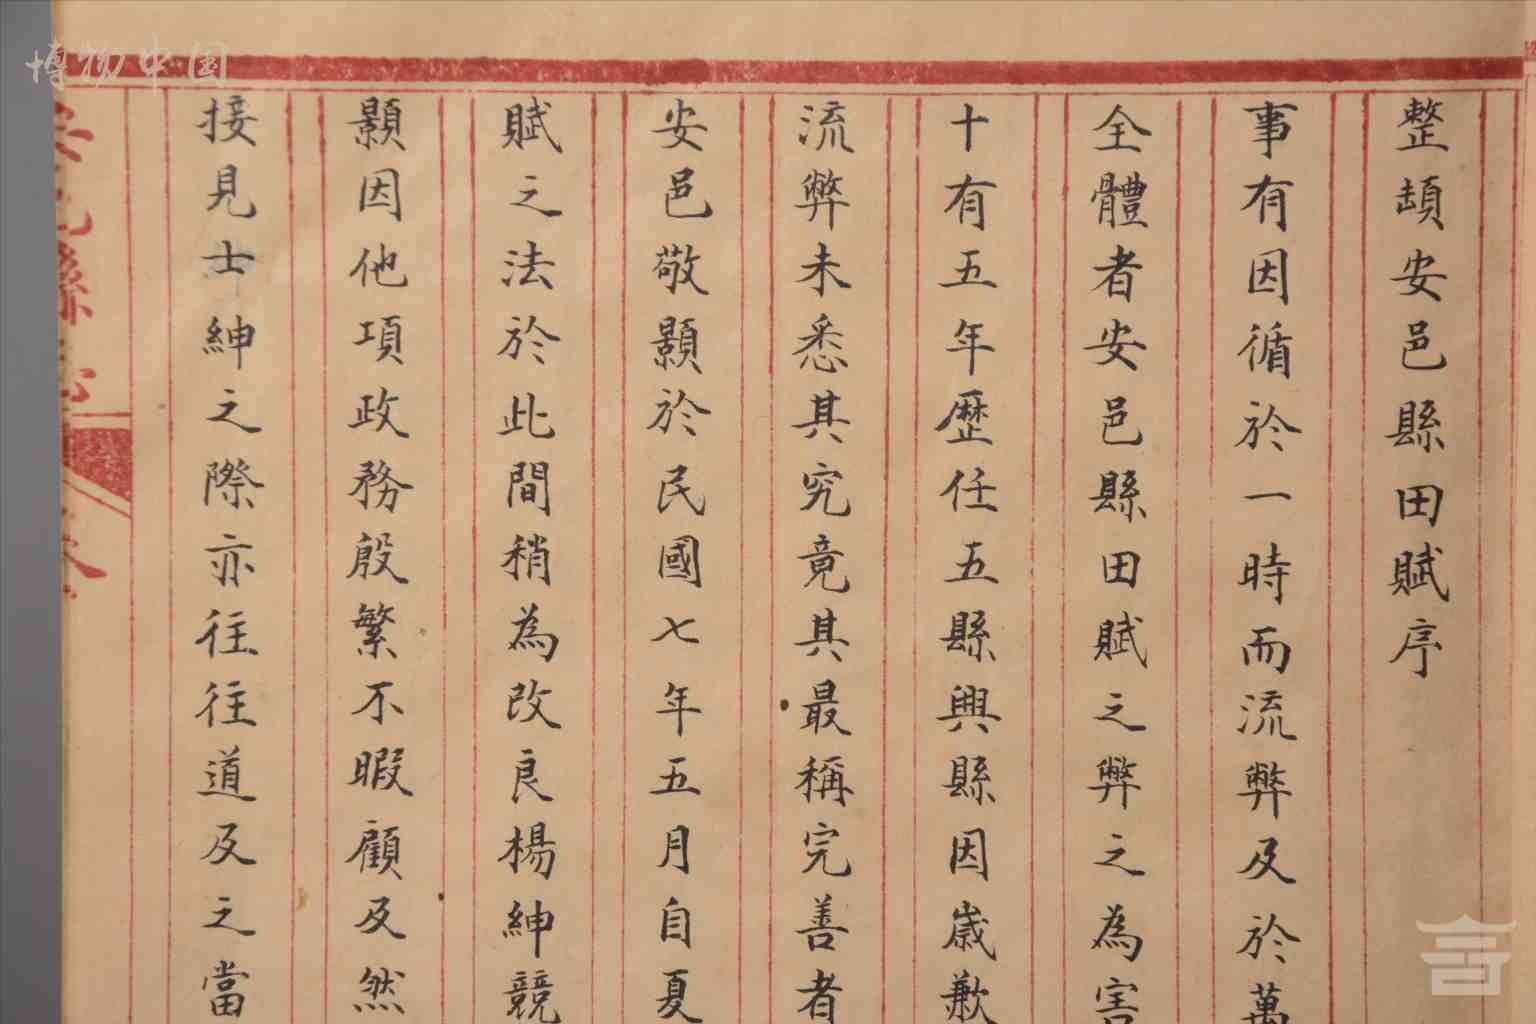 整頓安邑縣田賦序
事有因循於一時而流弊及於萬
全體者安邑縣田賦之弊之為害
十有五年歷任五縣興縣因歲歉
流弊未悉其究竟其最稱完善者
安邑敬顥於民國七年五月自夏
賦之法於此間稍為改良楊紳競
顥因他項政務殷繁不暇顧及然
接見士紳之際亦往往道及之當
安邑縣志
卷
博物中国